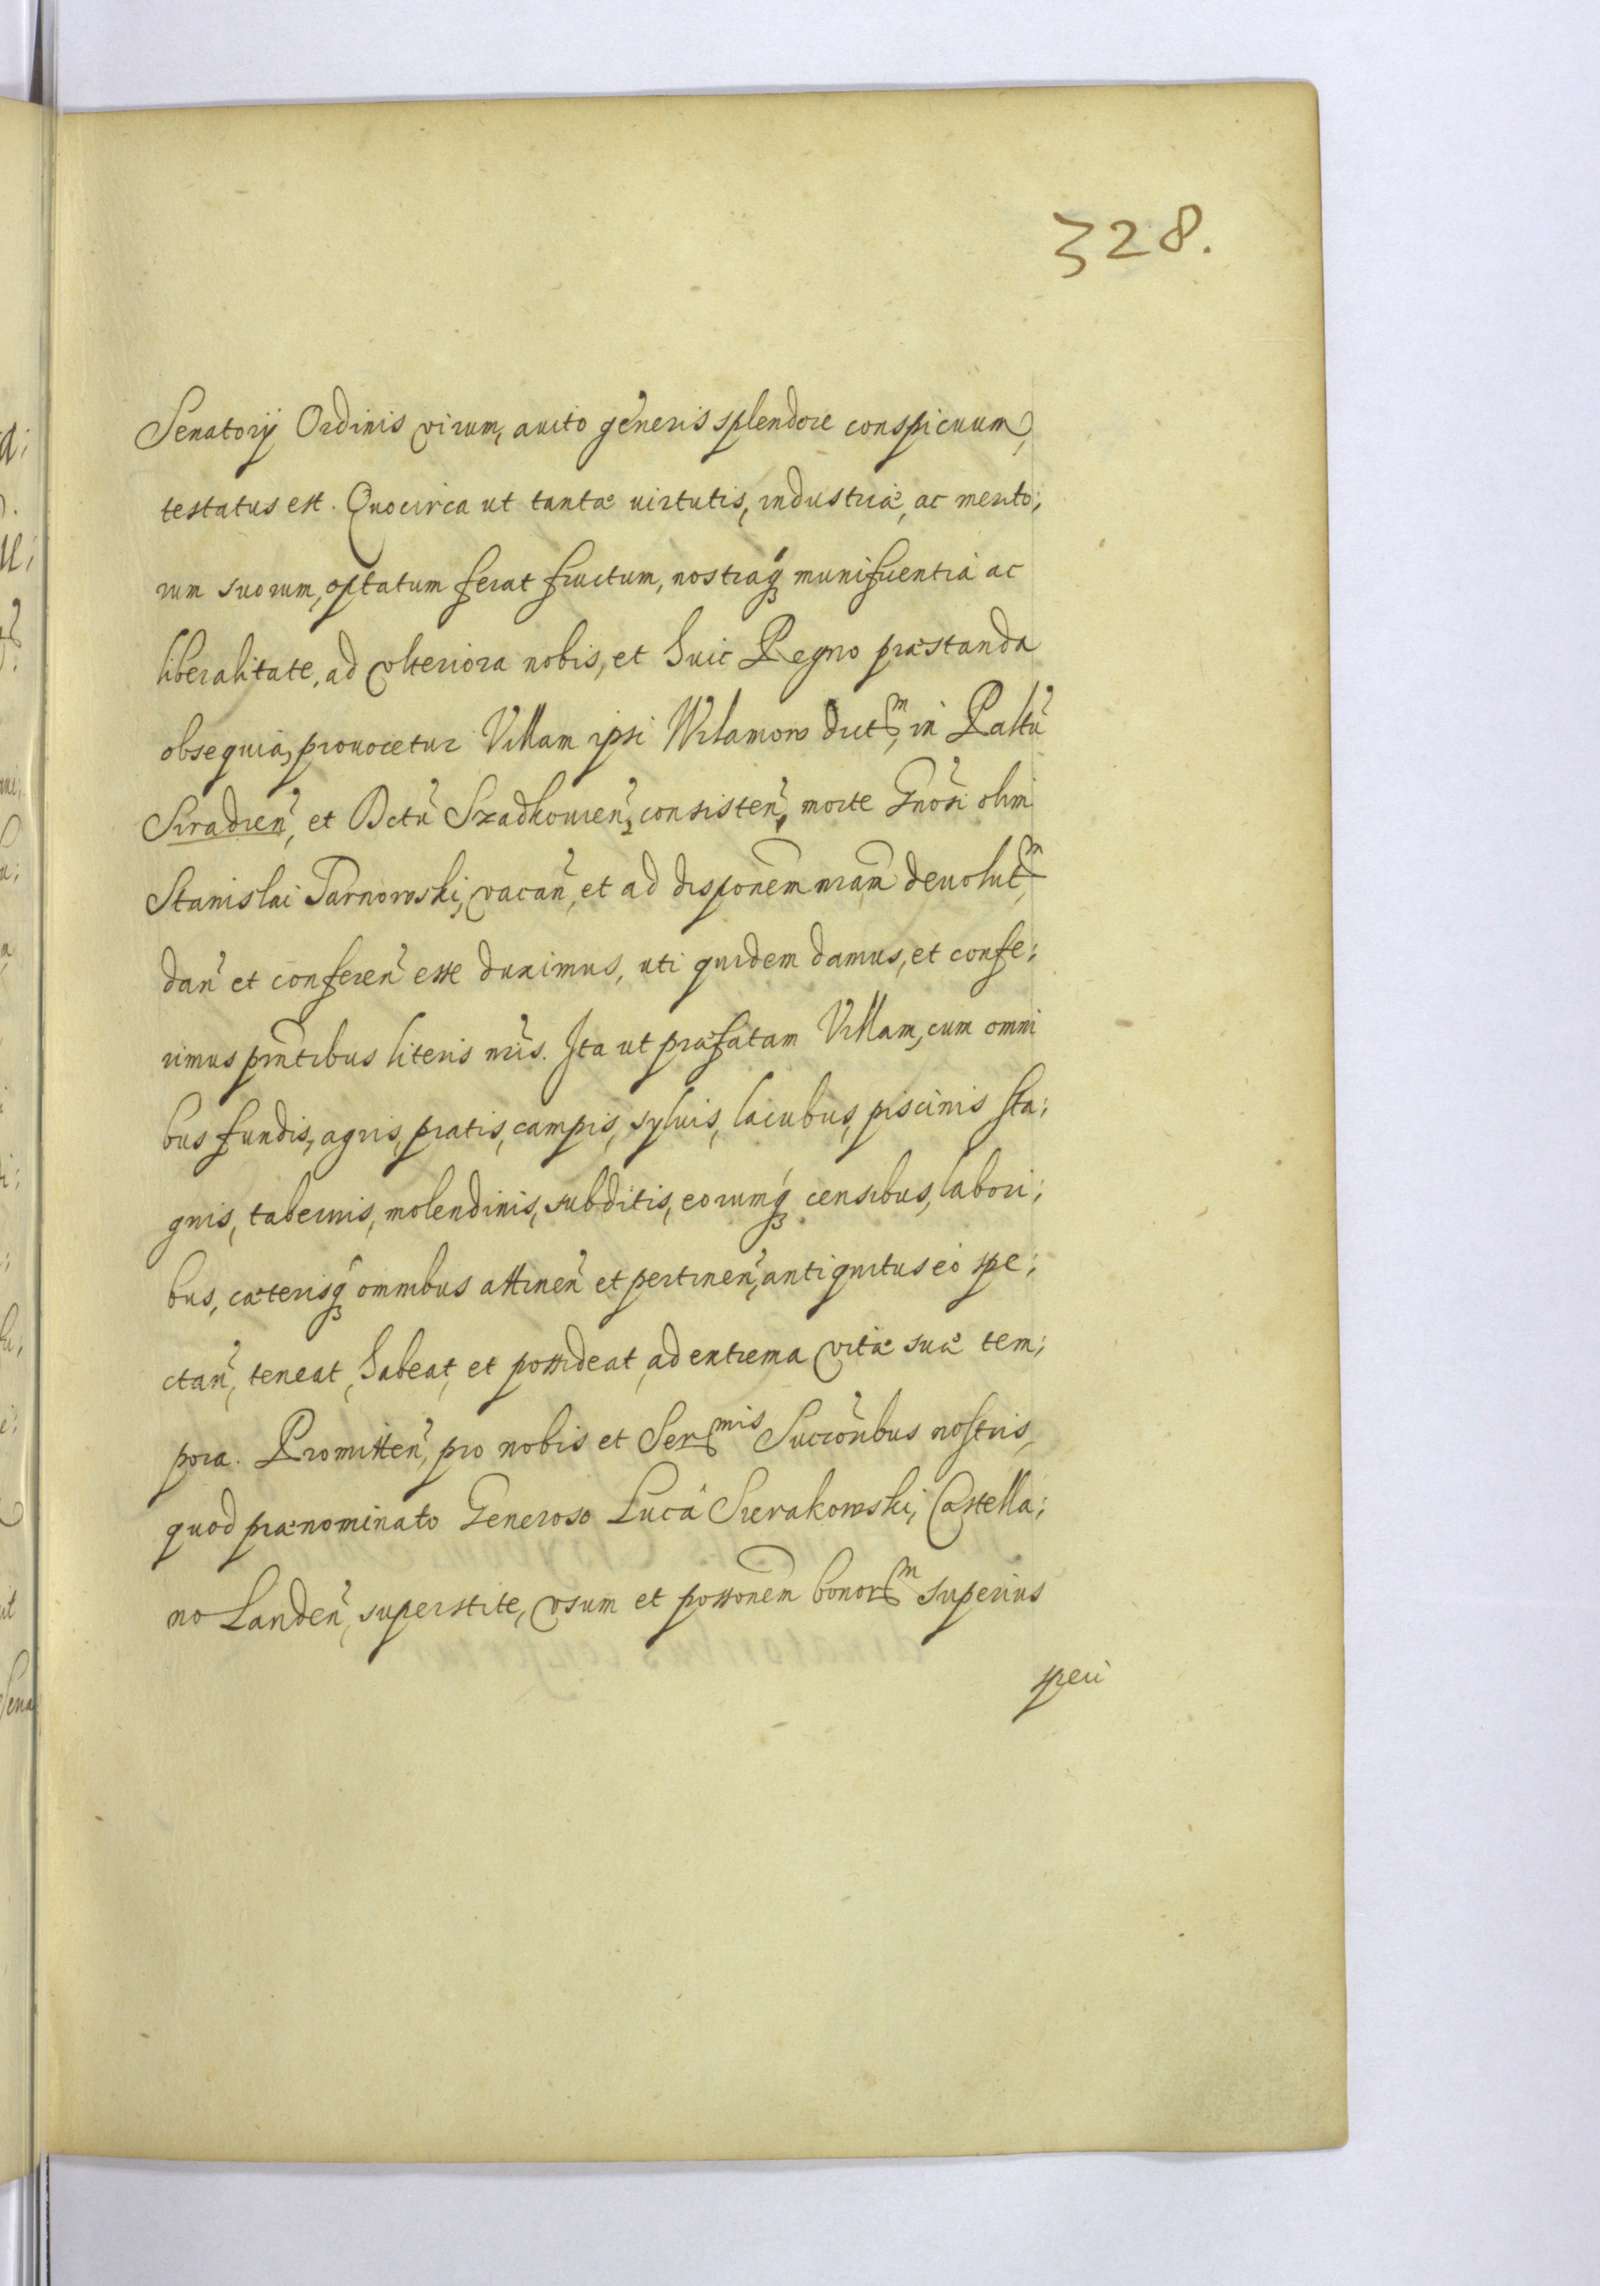 328.
Senatorij Ordinis virum, auito generis splendore conspicuum,
testatus est. Quocirca ut tantæ uirtutis, industriæ, ac merito;
rum suorum, optatum ferat fructum, nostraq́ munificentia ac
liberalitate, ad vlteriora nobis, et huic Regno præstanda
obsequia, prouocetur Villam ipsi Wilamow dictm, in Paltũ
Siradieñ, et Dctũ Szadkouieñ, consisteñ, morte Gnõsi olim
Stanislai Tarnowski, vacañ, et ad disponẽm nrãm deuolutm,
dañ et confereñ esse duximus, uti quidem damus, et confe;
rimus prñtibus literis nrĩs. Ita ut præfatam Villam, cum omni
bus fundis, agris, pratis, campis, syluis, lacubus, piscinis sta;
gnis, tabernis, molendinis, subditis, eorumq́ censibus, labori;
bus, cæterisq́ omnibus attineñ et pertineñ, antiquitus eò spe;
ctañ, teneat, habeat, et possideat, ad extrema vitæ suæ tem;
pora. Promitteñ, pro nobis et Sermis Succr̃oibus nostris,
quod prænominato Generoso Lucâ Sierakowski, Castella;
no Landeñ, superstite, vsum et possonẽm bonorm superius